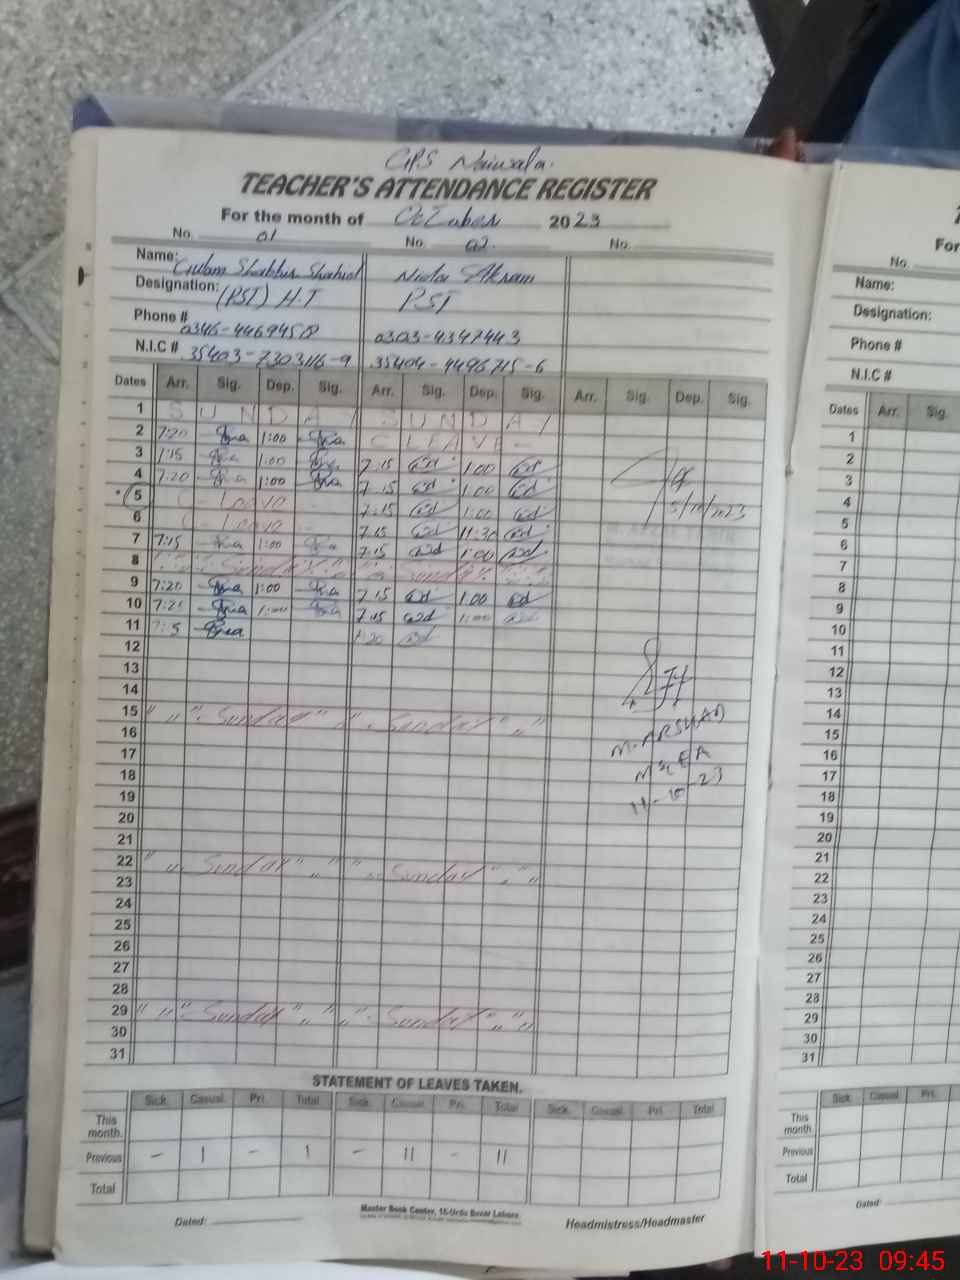 GPS Naiwala.
TEACHER'S ATTENDANCE REGISTER
For the month of October 2023
No. 01 No. 02. No.
Name: Gulam Shabbir Shahid Akram
Designation: (PST) H.T PST
Phone # 0346-4469458 0303-4347443
N.I.C # 35403-7303116-9 35404-4496715-6
Dates Arr. Sig. Dep. Sig. Arr. Sig. Dep. Sig. Arr. Sig. Dep. Sig.
1 SUNDAY SUNDAY
2 7:20 1:00 C LEAVE -
3 7:15 1:00 7.15 1.00
4 7:20 1:00 7.15 1:00
5 C - Leave 7:15 1:00 5/10/2023
6 C - Leave 7.15 11:30
7 7:15 1:00 7.15 1:00
8 Sunday Sunday
9 7:20 1:00 7.15 1.00
10 1:00 7.15 1:00
11
12
13
14
15 " " Sunday " " Sunday " "
16
M. ARSHAD
17
MEA
18
11-10-23
19
20
21
22 " " Sunday " " " " Sunday " " "
23
24
25
26
27
28
29 " " " Sunday " " " " Sunday " "
30
31
STATEMENT OF LEAVES TAKEN.
Sick. Casual. Pri. Total Sick. Casual. Pri. Total Sick. Casual. Pri. Total
This month.
Previous - 1 - 1 - 11 - 11
Total
Master Book Center, 15-Urdu Bazar Lahore
Dated: Headmistress/Headmaster
For
No.
Name:
Designation:
Phone #
N.I.C #
Dates Arr. Sig.
1
2
3
4
5
6
7
8
9
10
11
12
13
14
15
16
17
18
19
20
21
22
23
24
25
26
27
28
29
30
31
Sick Casual Pri.
This month.
Previous
Total
Dated:
11-10-23 09:45